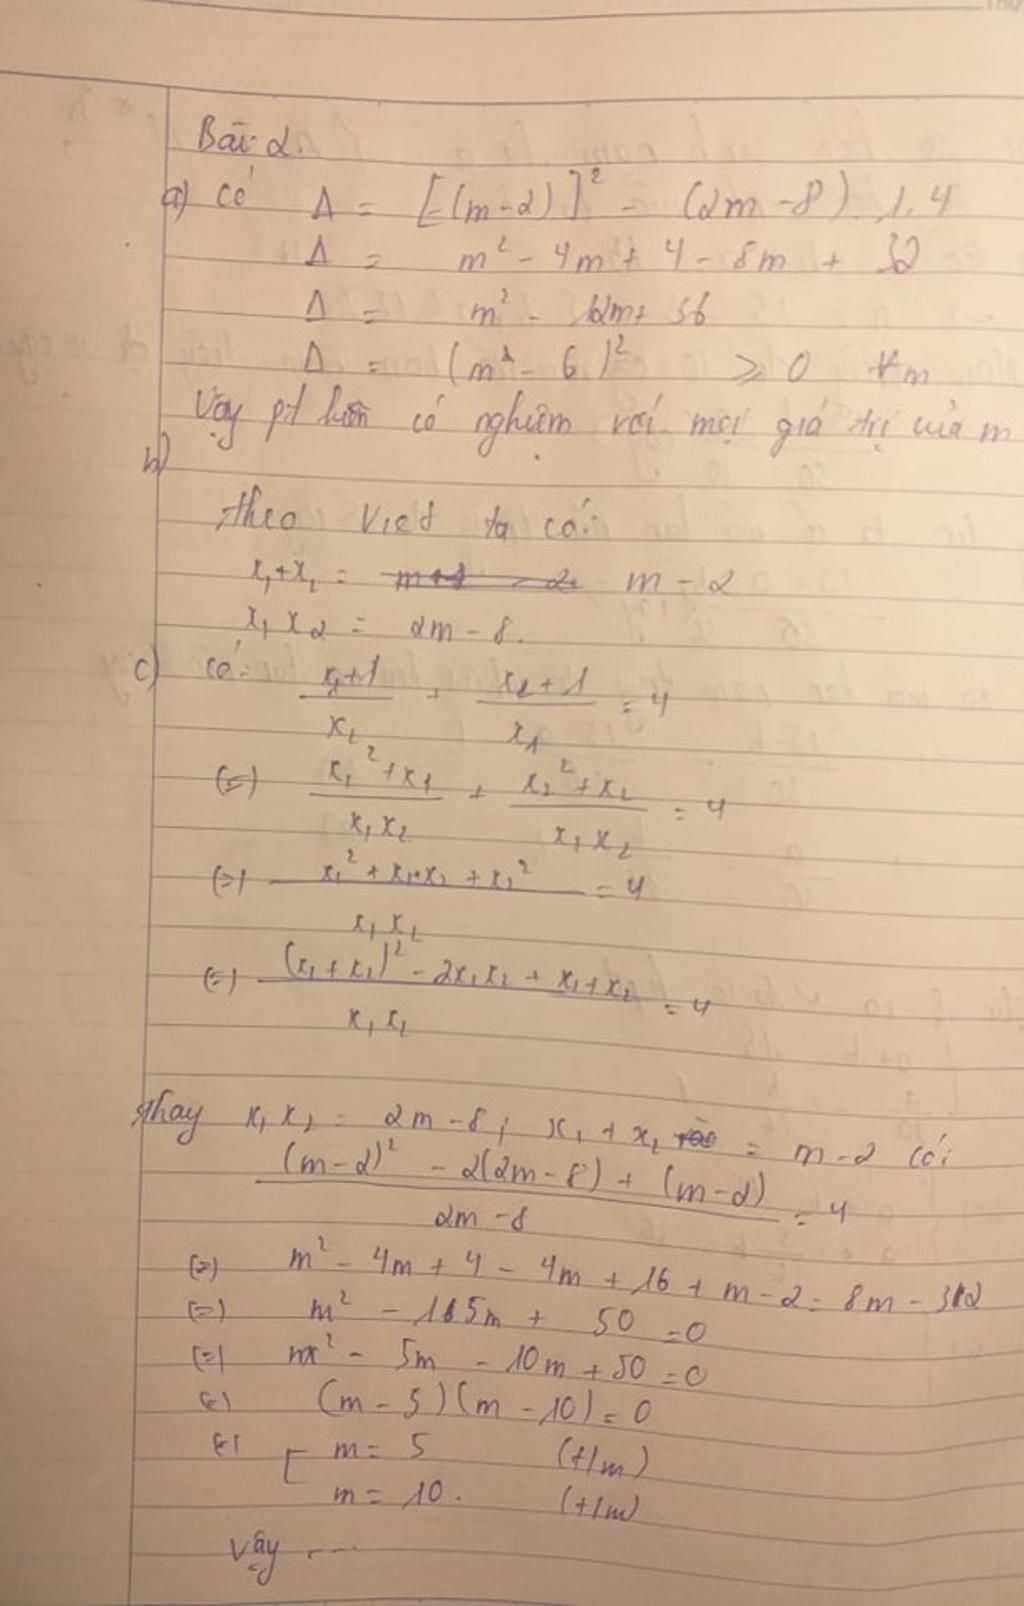 Bài 2:
a) có Δ = [-(m-2)]² - (2m-8).1.4
Δ = m² - 4m + 4 - 8m + 32
Δ = m² - 12m + 36
Δ = (m - 6)² ≥ 0 ∀m
Vậy pt luôn có nghiệm với mọi giá trị của m
b)
theo Viet ta có:
x₁+x₂ = m - 2
x₁x₂ = 2m - 8.
c) có: (x₁+1)/x₂ + (x₂+1)/x₁ = 4
(=) (x₁²+x₁)/(x₁x₂) + (x₂²+x₂)/(x₁x₂) = 4
(=) (x₁²+x₁+x₂+x₂²)/(x₁x₂) = 4
(=) ((x₁+x₂)² - 2x₁x₂ + x₁+x₂)/(x₁x₂) = 4
thay x₁x₂ = 2m-8; x₁+x₂ = m-2 có:
((m-2)² - 2(2m-8) + (m-2))/(2m-8) = 4
(=) m² - 4m + 4 - 4m + 16 + m - 2 = 8m - 32
(=) m² - 15m + 50 = 0
(=) m² - 5m - 10m + 50 = 0
(=) (m - 5)(m - 10) = 0
(=) [ m = 5 (t/m)
m = 10. (t/m)
Vậy ....